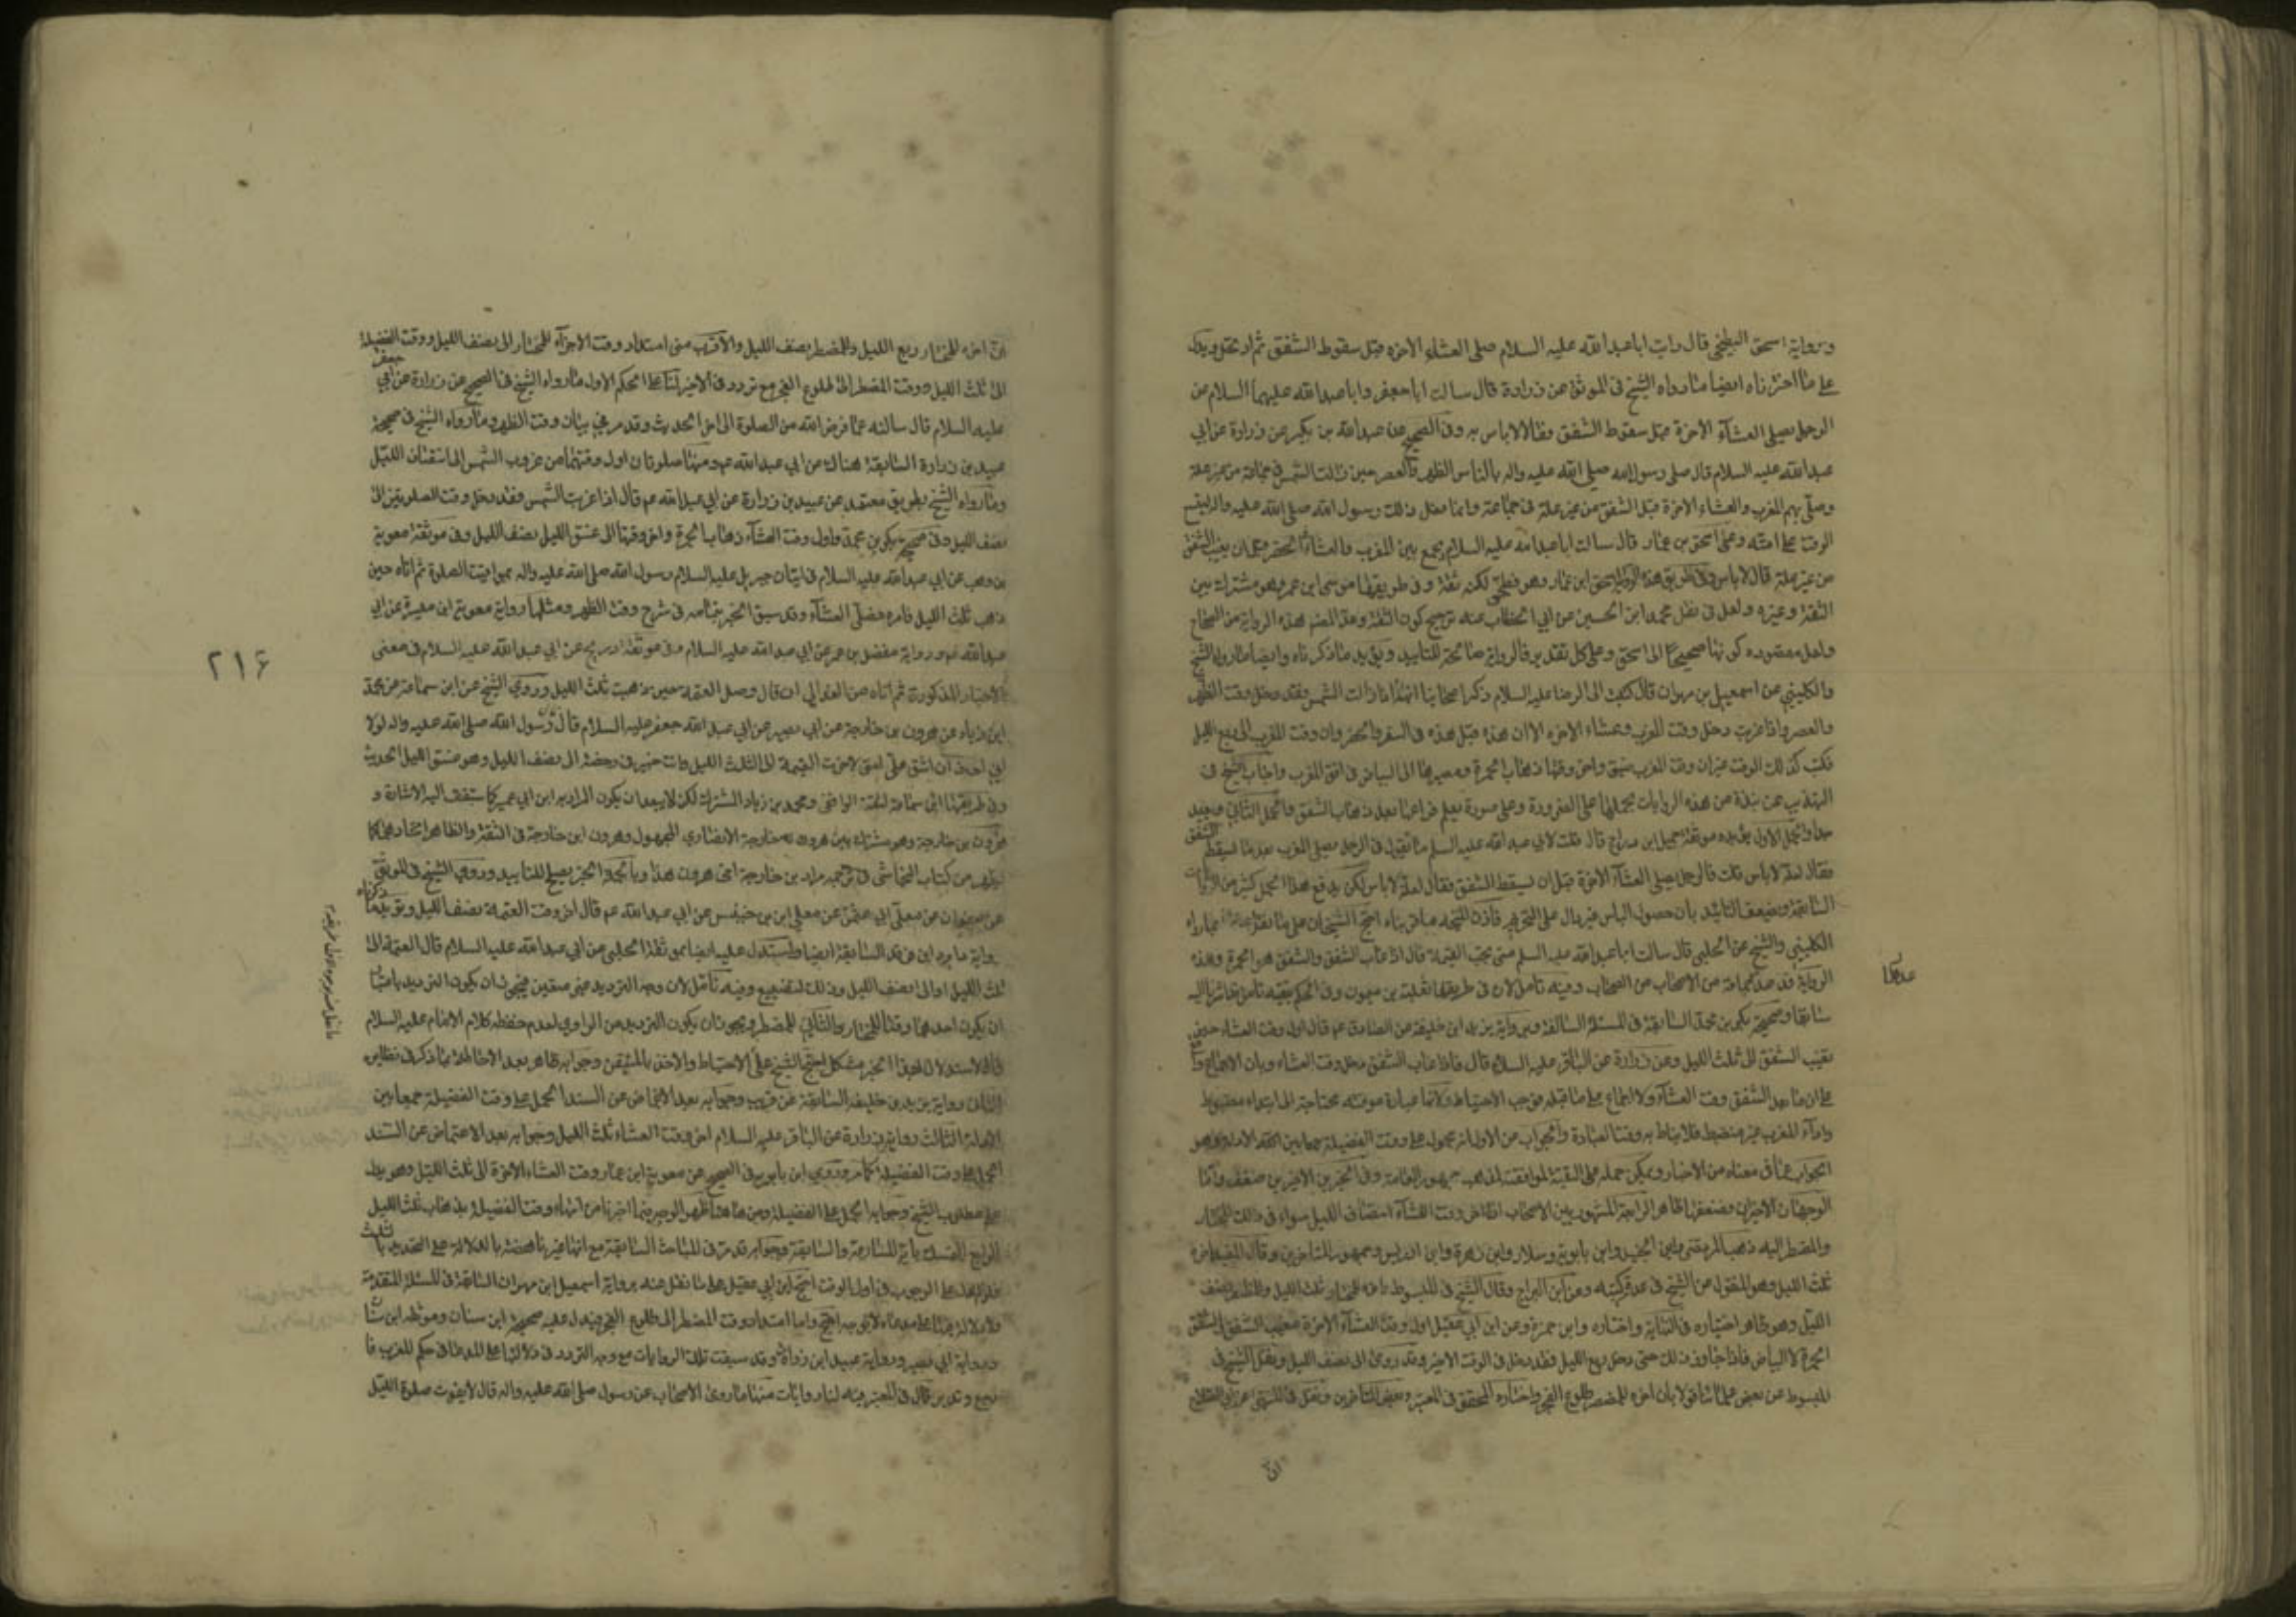 ورواية اسحق البطيخي قال رايت ابا عبد الله عليه السلام صلى العشاء الاخرة قبل سقوط الشفق ثم ارتحل ويدل
على ما اخترناه ايضا ما رواه الشيخ في الموثق عن زرارة قال سالت ابا جعفر وابا عبد الله عليهما السلام عن
الرجل يصلي العشاء الاخرة قبل سقوط الشفق فقالا لا باس به وفي الصحيح عن عبد الله بن بكير عن زرارة عن ابي
عبد الله عليه السلام قال صلى رسول الله صلى الله عليه واله بالناس الظهر والعصر حين زالت الشمس في جماعة من غير علة
وصلى بهم المغرب والعشاء الاخرة قبل الشفق من غير علة في جماعة وانما فعل ذلك رسول الله صلى الله عليه واله ليتسع
الوقت على امته وعن اسحق بن عمار قال سالت ابا عبد الله عليه السلام يجمع بين المغرب والعشاء في الحضر قبل ان يغيب الشفق
من غير علة قال لا باس وفي طريق هذه الرواية اسحق ابن عمار وهو فطحي لكنه ثقة وفي طريقها موسى ابن عمر وهو مشترك بين
الثقة وغيره ولعل في نقل محمد ابن الحسين عن ابي الخطاب عنه ترجيح كون الثقة وعد المص هذه الرواية من الصحاح
ولعل مقصوده كونها صحيحا الى اسحق وعلى كل تقدير فالرواية صالحة للتاييد ويؤيد ما ذكرناه وايضا ما رواه الشيخ
والكليني عن اسمعيل بن مهران قال كتبت الى الرضا عليه السلام ذكر اصحابنا انه اذا زالت الشمس فقد دخل وقت الظهر
والعصر واذا غربت دخل وقت المغرب وعشاء الاخرة الا ان هذه قبل هذه في السفر والحضر وان وقت المغرب الى ربع الليل
فكتب كذلك الوقت غير ان وقت المغرب ضيق واخر وقتها ذهاب الحمرة ومصيرها الى البياض في افق المغرب واجاب الشيخ في
التهذيب عن نبذة من هذه الروايات بحملها على الضرورة وعلى صورة يعلم فراغها بعد ذهاب الشفق والحمل الثاني بعيد
جدا والحمل الاول يؤيده موثقة جميل ابن دراج قال قلت لابي عبد الله عليه السلم ما تقول في الرجل يصلي المغرب بعد ما يسقط الشفق
فقال لعلة لا باس قلت فالرجل يصلي العشاء الاخرة قبل ان يسقط الشفق فقال لعلة لا باس لكن يدفع هذا الحمل كثير من الروايات
السابقة ويضعف التائيد بان حصول الباس غير دال على التحريم
الكليني والشيخ عن الحلبي قال سالت ابا عبد الله عليه السلم متى تجب العتمة قال اذا غاب الشفق والشفق هو الحمرة وهذه
الرواية قد عدها جماعة من الاصحاب من الصحاح وفيه تامل لان في طريقها ثعلبة بن ميمون
سابقا وصحيحة بكر بن محمد السابقة في المسئلة السالفة وبرواية يزيد ابن خليفة عن الصادق عم قال اول وقت العشاء حين
يغيب الشفق الى ثلث الليل وعن زرارة عن الباقر عليه السلام قال فاذا غاب الشفق دخل وقت العشاء وبان الاجماع واقع
على ان ما بعد الشفق وقت العشاء ولا اجماع على ما قبله فوجب الاحتياط ولانها عبادة موقتة محتاجة الى ابتداء مضبوط
واداء المغرب غير منضبط فلا يناط به وقت العبادة والجواب عن الاول انه محمول على وقت الفضيلة جمعا بين الادلة وهو
الجواب عما في معناه من الاخبار ويمكن حمله على التقية لموافقته لمذهب جمهور العامة وفي الخبرين الاخيرين ضعف واما
الوجهان الاخيران فضعفهما ظاهر الرابعة المشهور بين الاصحاب ان اخر وقت العشاء انتصاف الليل سواء في ذلك المختار
والمضطر اليه ذهب المرتضى وابن الجنيد وابن بابويه وسلار وابن زهرة وابن ادريس وجمهور المتاخرين وقال المفيد اخره
ثلث الليل وهو المنقول من الشيخ في عدة كتبه وعن ابن البراج وقال الشيخ في المبسوط اخره للمختار ثلث الليل وللمضطر نصف
الليل وهو ظاهر اختياره في النهاية واختاره وابن حمزة وعن ابن ابي عقيل اول وقت العشاء الاخرة مغيب الشفق والشفق
الحمرة لا البياض فاذا جاوز ذلك حتى دخل ربع الليل فقد دخل في الوقت الاخير وقد روى الى نصف الليل ونقل الشيخ في
المبسوط عن بعض علمائنا قولا بان اخره للمضطر طلوع الفجر واختاره المحقق في المعتبر وبعض المتاخرين ونقل في المنتهى عن ابي الصلاح
ان
ان اخره للمختار ربع الليل وللمضطر نصف الليل والاقرب عندي امتداد وقت الاجزاء للمختار الى نصف الليل ووقت الفضيلة
الى ثلث الليل ووقت المضطر الى طلوع الفجر مع تردد في الاخير لنا على الحكم الاول ما رواه الشيخ في الصحيح عن زرارة عن ابي جعفر
عليه السلام قال سالته عما فرض الله من الصلوة الى اخر الحديث وقد مر في بيان وقت الظهر وما رواه الشيخ في صحيحة
عبيد بن زرارة السابقة هناك عن ابي عبد الله عم ومنها صلوتان اول وقتهما من غروب الشمس الى انتصاف الليل
وما رواه الشيخ بطريق معتمد عن عبيد بن زرارة عن ابي عبد الله عم قال اذا غربت الشمس فقد دخل وقت الصلوتين الى
نصف الليل وفي صحيحة بكر بن محمد واول وقت العشاء ذهاب الحمرة واخر وقتها الى غسق الليل نصف الليل وفي موثقة معوية
بن وهب عن ابي عبد الله عليه السلام في اتيان جبريل عليه السلام رسول الله صلى الله عليه واله بمواقيت الصلوة ثم اتاه حين
ذهب ثلث الليل فامره فصلى العشاء وقد سبق الخبر بتمامه في شرح وقت الظهر ومثلها رواية معوية ابن ميسرة عن ابي
عبد الله عم ورواية مفضل بن عمر عن ابي عبد الله عليه السلام وفي موثقة ذريح عن ابي عبد الله عليه السلام في معنى
الاخبار المذكورة ثم اتاه من الغد الى ان قال وصل العتمة حين ذهبت ثلث الليل وروى الشيخ عن ابن سماعة عن محمد
ابن زياد عن هرون بن خارجة عن ابي بصير عن ابي عبد الله جعفر عليه السلام قال رسول الله صلى الله عليه واله لولا
اني اخاف ان اشق على امتي لاخرت العتمة الى الثلث الليل وانت في رخصة الى نصف الليل وهو غسق الليل الحديث
وفي طريقها ابن سماعة الثقة الواقفي ومحمد بن زياد المشترك لكن لا يبعد ان يكون المراد به ابن ابي عمير كما ستقف اليه الاشارة و
هرون بن خارجة وهو مشترك بين هرون بن خارجة الانصاري المجهول وهرون ابن خارجة في الثقة والظاهر اتحادهما كما
يظهر من كتاب النجاشي في ترجمة مراد بن خارجة اخى هرون هذا وبالجملة الخبر يصلح للتاييد وروى الشيخ في الموثق
عن صفوان عن معلى ابي عثمن عن معلى ابن خنيس عن ابي عبد الله عم قال اخر وقت العتمة نصف الليل ويؤيد ما ذكرناه
السابقة ايضا واستدل عليه ايضا بموثقة الحلبي عن ابي عبد الله عليه السلام قال العتمة الى
ثلث الليل او الى نصف الليل وذلك التضييع وفيه تامل لان وجه الترديد غير متعين فيجوز ان يكون الترديد باعتبار
ان يكون احدهما وقتا للمختار والثاني للمضطر ويجوز ان يكون الترديد من الراوي لعدم حفظه كلام الامام عليه السلام
فالاستدلال بهذا الخبر مشكل احتج الشيخ على الاحتياط والاخذ بالمتيقن وجوابه ظاهر بعد الاحاطة بما ذكر في نظايره
الثاني رواية يزيد بن خليفة السابقة عن قريب وجوابه بعد الاغماض عن السند الحمل على وقت الفضيلة جمعا بين
الادلة الثالث رواية زرارة عن الباقر عليه السلام اخر وقت العشاء ثلث الليل وجوابه بعد الاغماض عن السند
الحمل على وقت الفضيلة كما مر وروى ابن بابويه في الصحيح عن معوية ابن عمار وقت العشاء الاخرة الى ثلث الليل وهو يدل
على مطلوب الشيخ وجوابه الحمل على الفضيلة ومن هاهنا ظهر الوجه فيما اخترنا من انتهاء وقت الفضيلة بذهاب ثلث الليل
الرابع التمسك باية المسارعة والسابقة وجوابه قد مر في المباحث السابقة مع انها غير ناهضة بالدلالة على التحديد بالثلث
في اول الوقت احتج ابن ابي عقيل على ما نقل عنه برواية اسمعيل ابن مهران السابقة في المسئلة المتقدمة
ولا دلالة فيها على مدعاه لا بوجه واما امتداد وقت المضطر الى طلوع الفجر فيدل عليه صحيحة ابن سنان وموثقة ابن سنان
ورواية ابي بصير ورواية عبيد ابن زرارة وقد سبقت تلك الروايات مع وجه التردد في دلالتها على المدعا في حكم المغرب فا
رجع وتدبر قال في المعتبر فيه لنا روايات منها ما روى الاصحاب عن رسول صلى الله عليه واله قال لا يفوت صلوة الليل
٢١۶